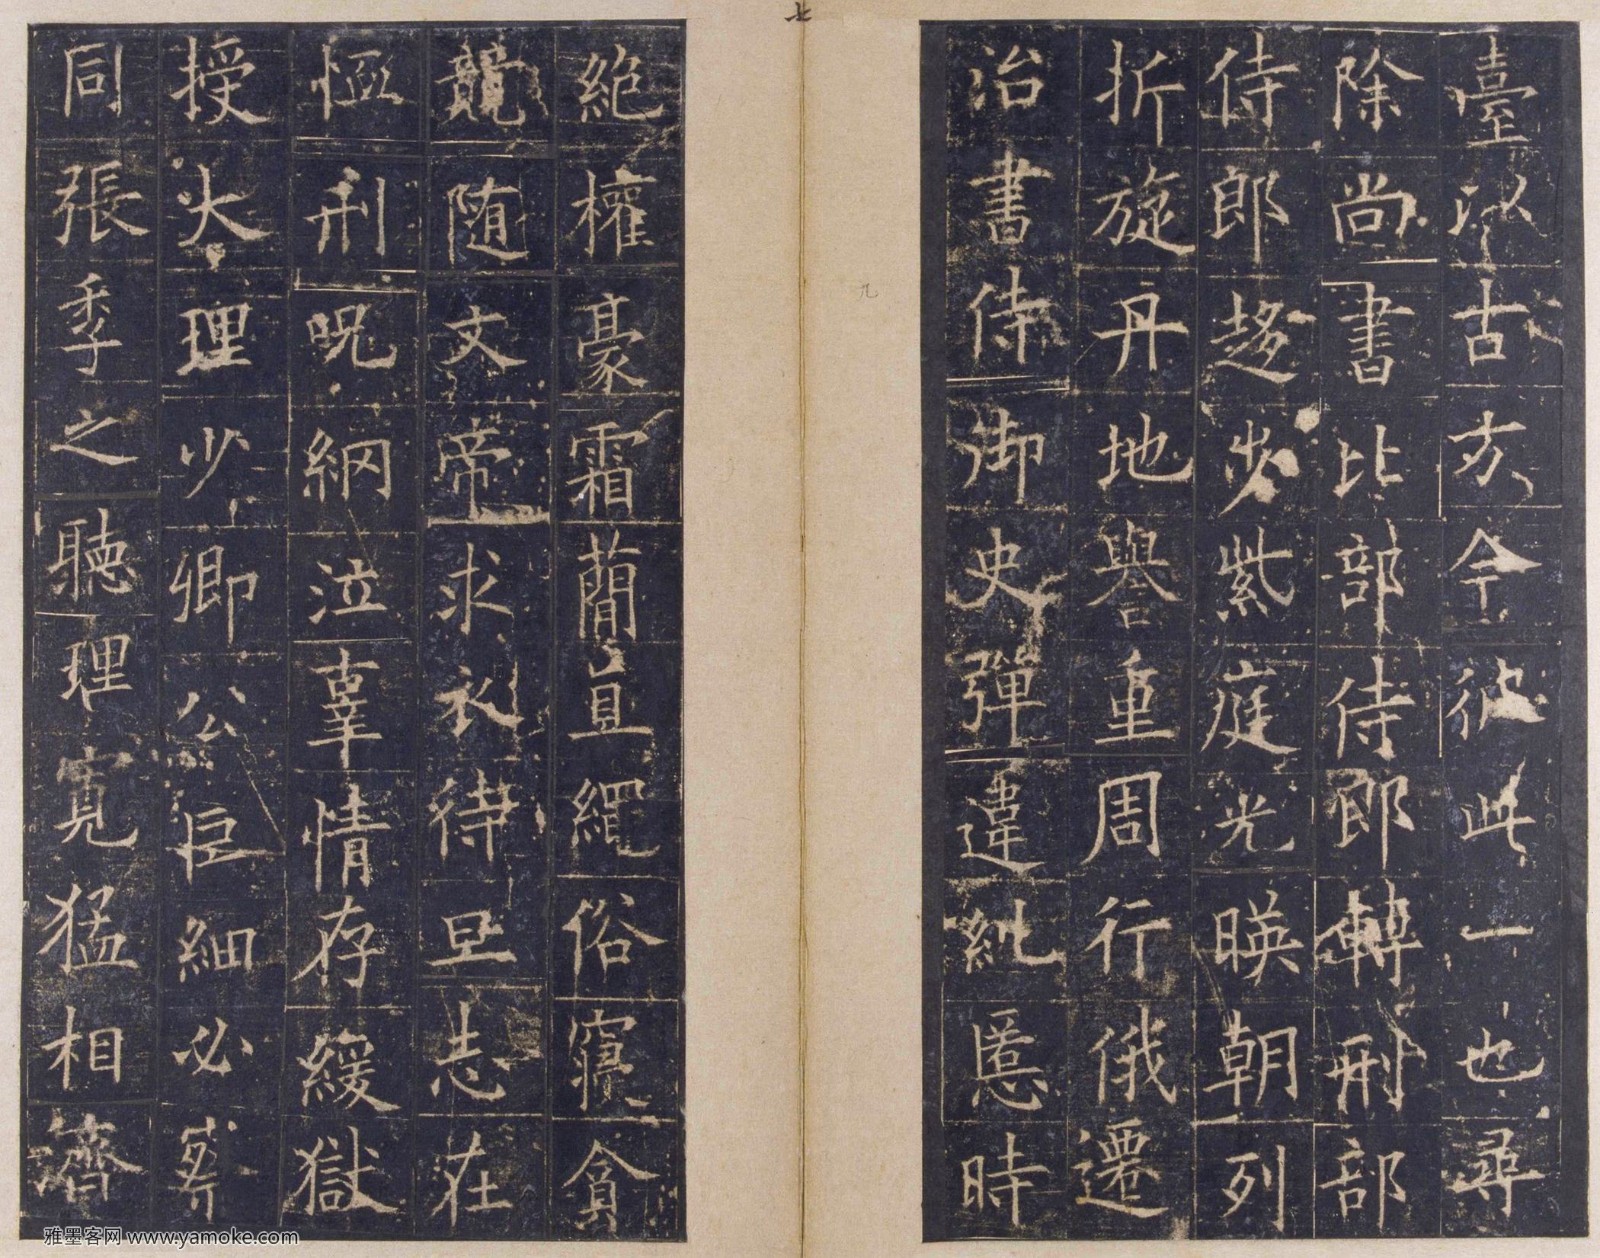 臺以古方今彼此一也尋
除尚書比部侍郎轉刑部
侍郎趍步紫庭光暎朝列
折旋丹地譽重周行俄遷
治書侍御史彈違糺慝時
九
絶權豪霜蕳直繩俗寢貪
競随文帝求衣待旦志在
恤刑呪網泣辜情存緩獄
授大理少卿公巨細必察
同張季之聽理寬猛相濟
雅墨客网 www.yamoke.com